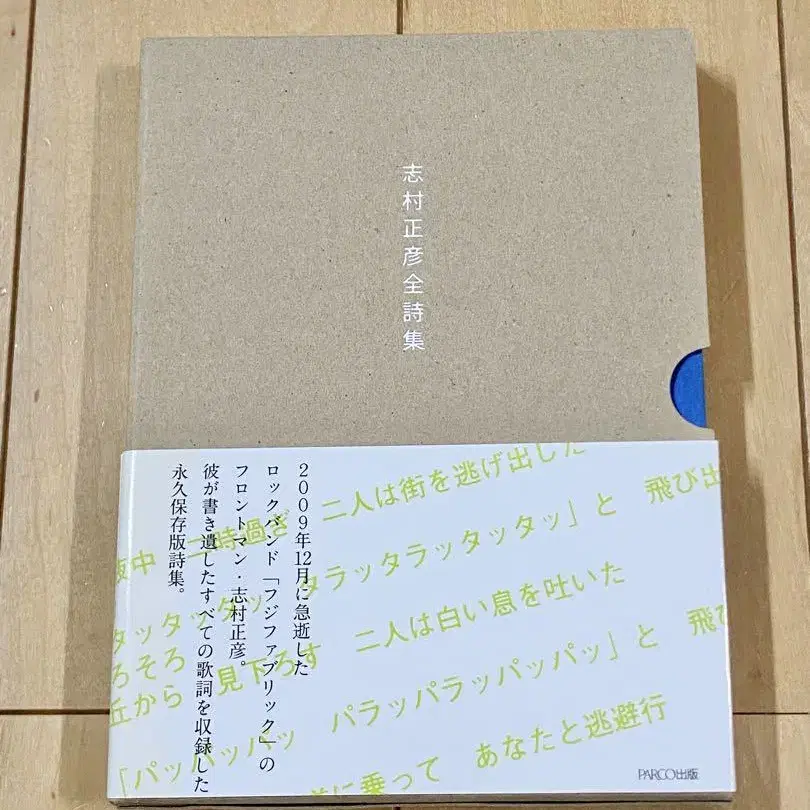 志村正彦全詩集
2009年12月に急逝した
ロックバンド「フジファブリック」の
フロントマン・志村正彦。
彼が書き遺したすべての歌詞を収録した
永久保存版詩集。
夜中 二時過ぎ 二人は街を逃げ出した
タッタッタッ タラッタラッタッタッ」と 飛び出
ろそろ 見下ろす 二人は白い息を吐いた
丘から
「パッパッパッ パラッパラッパッパッ」と 飛び
に乗って あなたと逃避行
PARCO出版